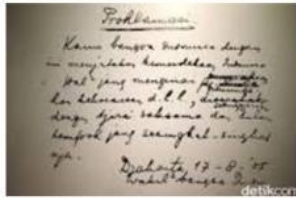 Proklamasi
Kami bangsa Indonesia dengan
ini menjatakan kemerdekaan Indones
Hal2 jang mengenai
kekoeasaan d.l.l., diselenggarakan
dengan tjara saksama dan dalam
tempoh jang sesingkat-singkat
nja.
Djakarta 17-8-'05
Wakil bangsa Indon
detikcom